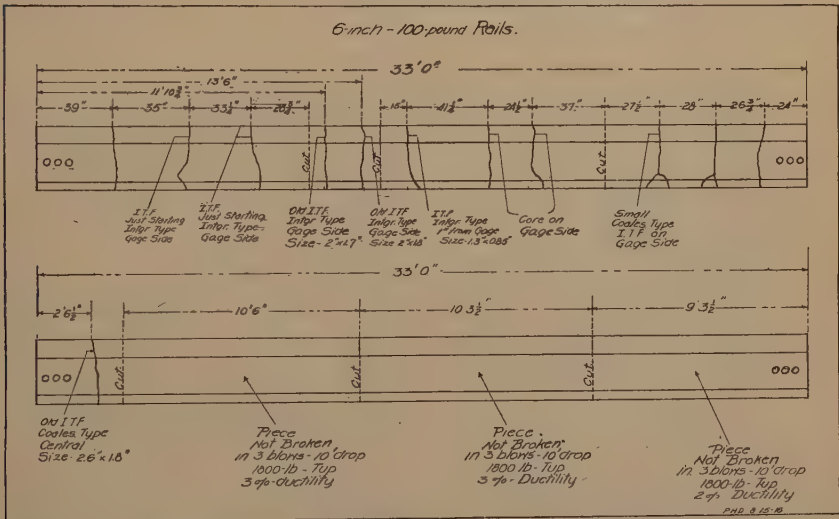 6-inch-100-pound Rails.
33'0"
13'6"
11'10 3/4"
39" 35" 33 1/4" 15" 41 1/4" 24 1/2" 37" 27 1/2" 28" 26 3/4" 24"
Cut Cut Cut
I.T.F.
Just Starting
Intgr Type
Gage Side
I.T.F.
Just Starting
Intgr. Type-
Gage Side
Old I.T.F
Intgr Type
Gage Side
Size-2"x1.7"
Old I.T.F
Intgr Type
Gage Side
Size 2"x1.8"
I.T.F
Intgr Type
1" from Gage
Size-1.3"x0.85"
Core on
Gage Side
Small
Coales Type
I.T.F on
Gage Side
33'0"
2'6 1/2" 10'6" 10 3 1/2" 9' 3 1/2"
Cut Cut Cut
Old I T F
Coales Type
Central
Size-2.6"x1.8"
Piece
Not Broken
in 3 blows-10'drop
1800-lb-Tup
3%-ductility
Piece.
Not Broken
in 3 blows-10'drop
1800-lb-Tup
3%-Ductility
Piece
Not Broken
in 3 blows-10'drop
1800-lb-Tup
2% Ductility